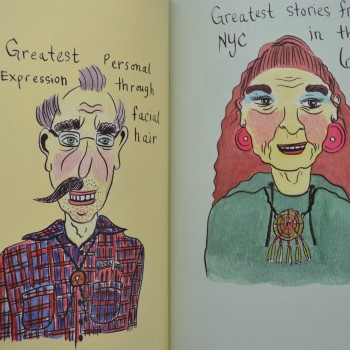 Greatest Personal
Expression through
facial
hair
Greatest stories
NYC in